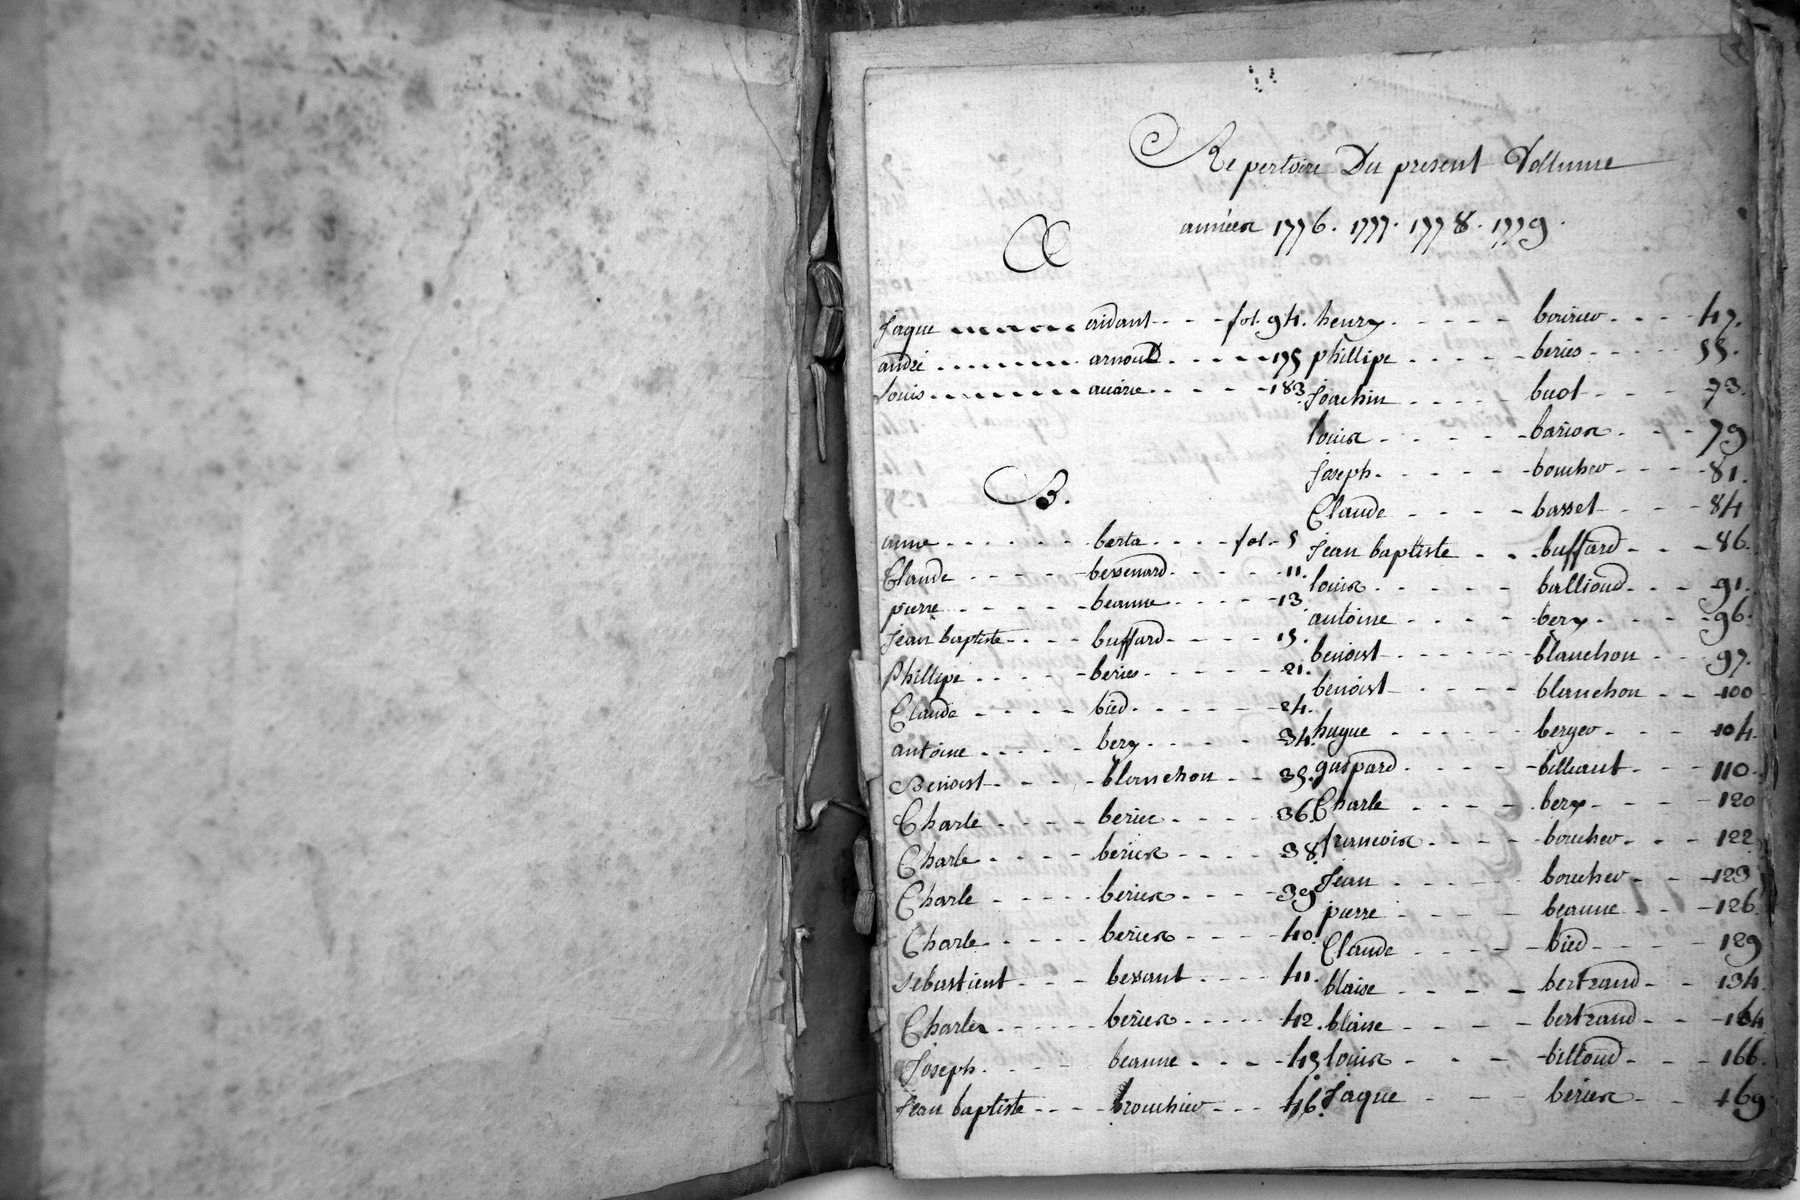 Repertoire Du present Vollume
années 1776. 1777. 1778. 1779.
A
Jaque aridant fol. 94.
andré arnoud 175
Louis 183
B.
anne berta fol. 5
Claude bessenard 11.
pierre beanne 13
Jean baptiste buffard 15.
phillipe beries 21.
Claude bied 24.
antoine bery 34.
Benoist blanchon 35.
Charle berier 36.
Charle beries 38.
Charle beries 39
Charle beries 40
Sebastient bessant 41.
Charles beries 42.
Joseph beanne 45
Jean baptiste brouchier 46.
henry bourier 47.
phillipe beries 55.
Joachin buot 73.
louis barios 79
Joseph boucher 81.
Claude basset 84
Jean baptiste buffard 86.
louis ballioud 91.
antoine bery 96.
benoist blanchon 97.
benoist blanchon 100
hugue berger 104.
gaspard billiaut 110
Charle bery 120
francois boucher 122
Jean boucher 123
pierre beanne 126
Claude bied 129
blaise bertrand 134
blaise bertrand 164
louis billoud 166.
Jaque beries 169